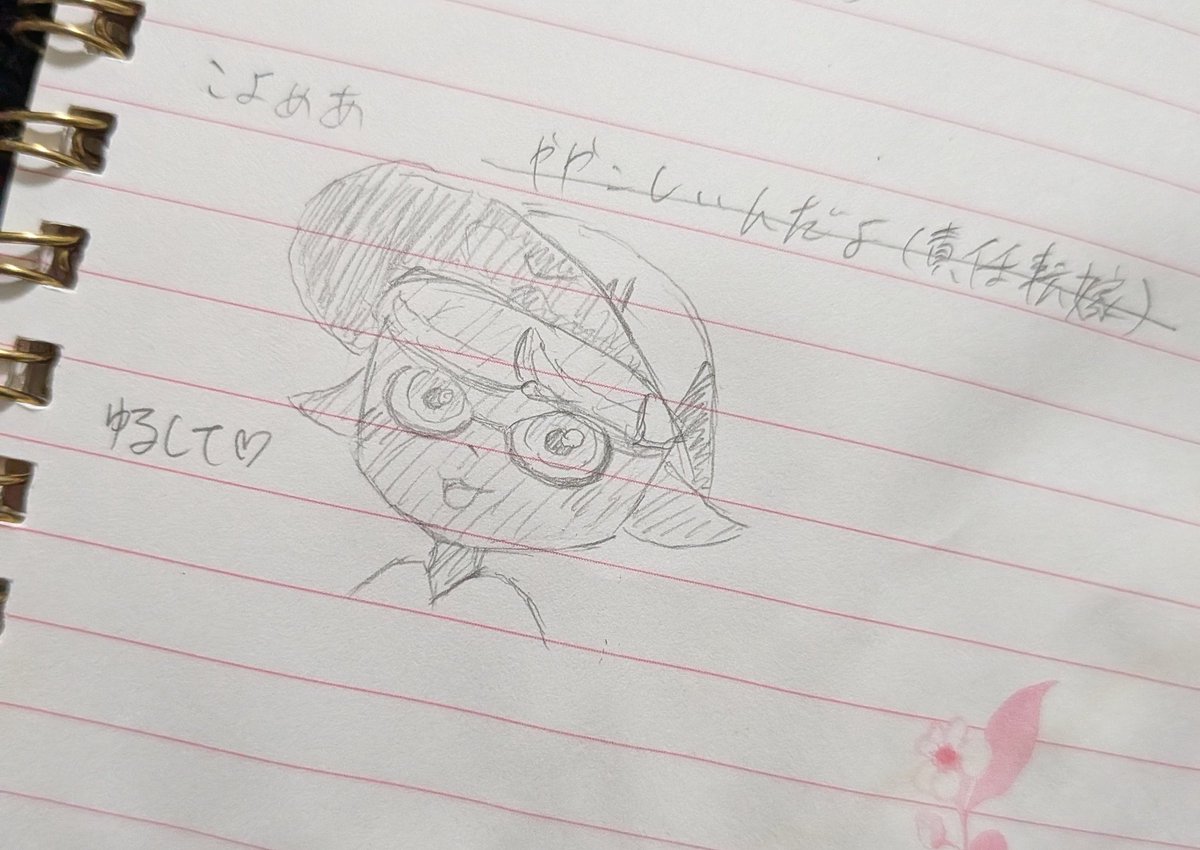 こよめあ
ややこしいんだよ(責任転嫁)
ゆるして♡